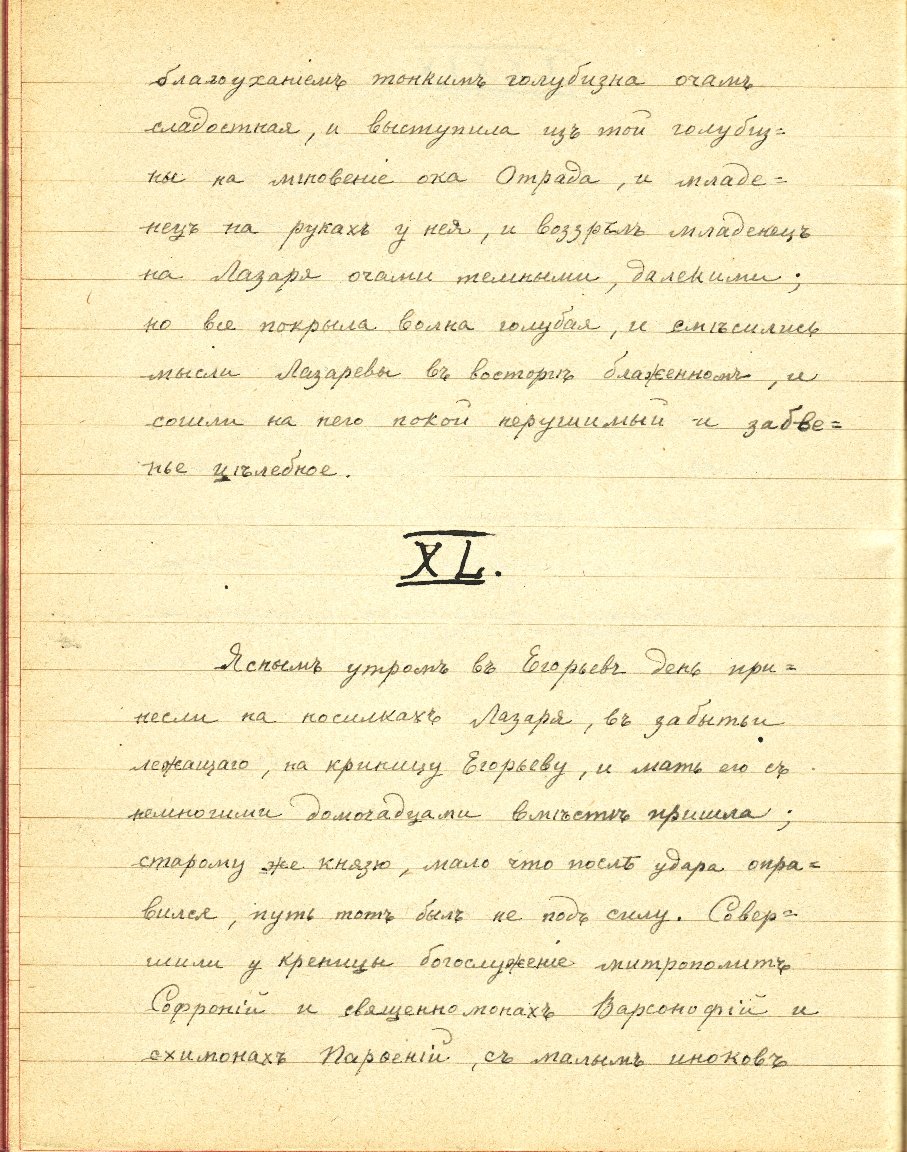 благоуханіемъ тонкимъ голубизна очамъ
сладостная, и выступила изъ той голубиз=
ны на мгновеніе ока Отрада, и младе=
нецъ на рукахъ у нея, и воззрѣлъ младенецъ
на Лазаря очами темными, далекими;
но все покрыла волна голубая, и смѣсились
мысли Лазаревы въ восторгѣ блаженномъ, и
сошли на него покой нерушимый и забве=
нье цѣлебное.
XL.
Яснымъ утромъ въ Егорьевъ день при=
несли на носилкахъ Лазаря, въ забытьи
лежащаго, на криницу Егорьеву, и мать его съ
немногими домочадцами вмѣстѣ пришла;
старому же князю, мало что послѣ удара опра=
вился, путь тотъ былъ не подъ силу. Совер=
шили у креницы богослуженіе митрополитъ
Софроній и священномонахъ Варсонофій и
схимонахъ Парѳеній, съ малымъ иноковъ